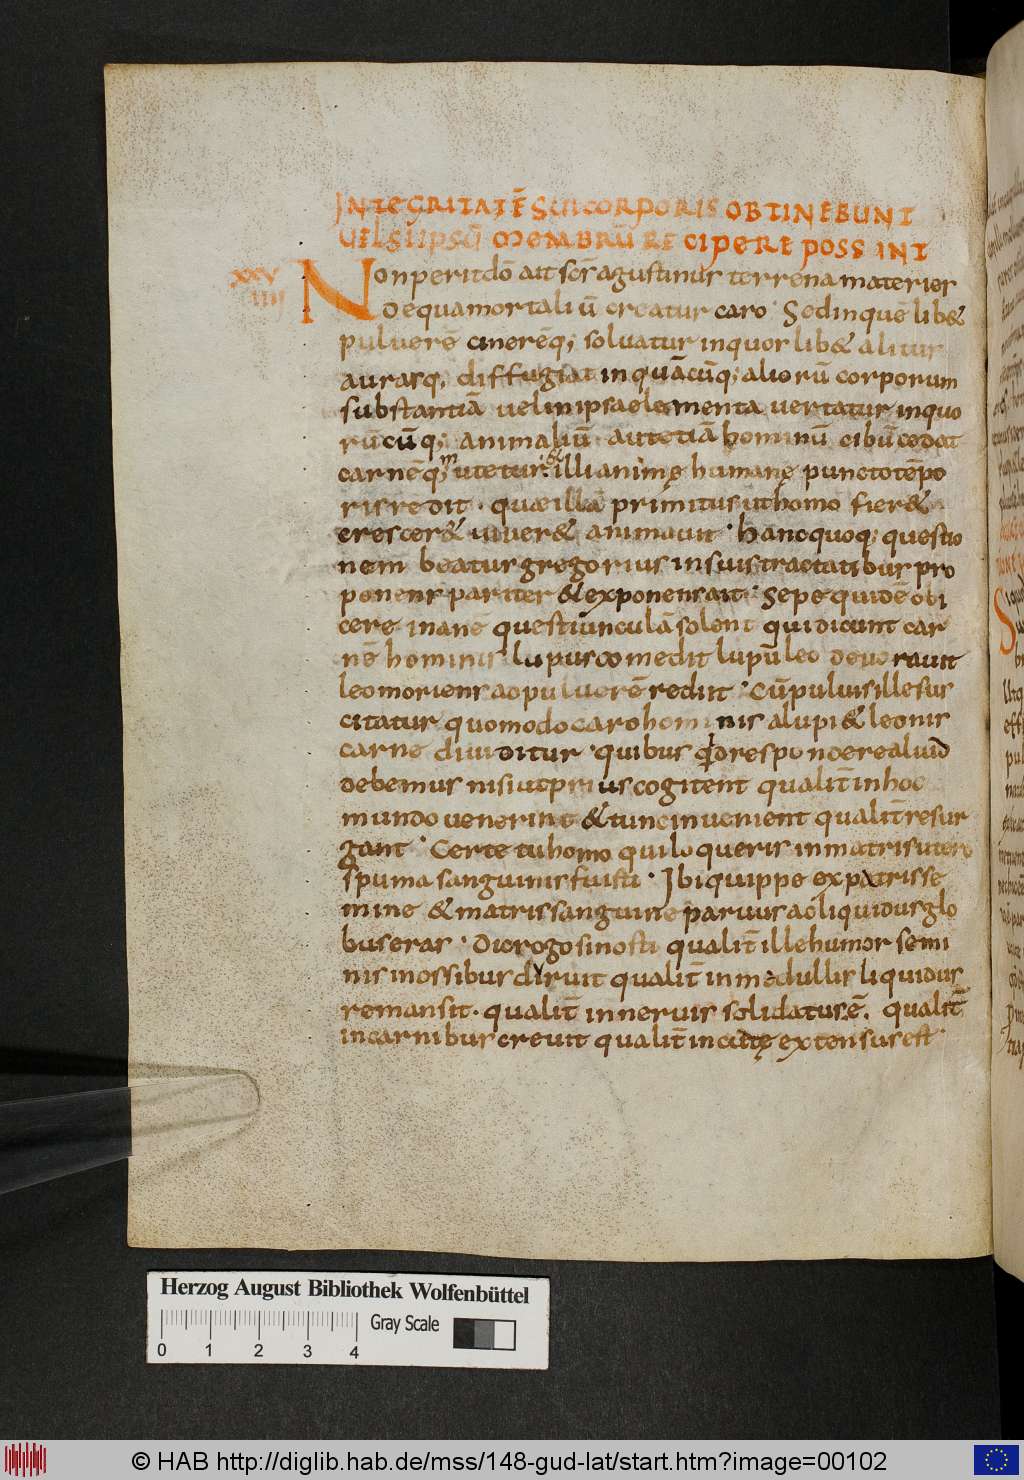 INTEGRITATĒ SUI CORPORIS OBTINEBUNT
UEL SI IPSŪ MEMBRŪ RECIPERE POSSINT
XXV
IIII
Non perit dō ait scs̄ agustinus terrena materies
de qua mortaliū creatur caro · Sed in quēlib&
puluerē cinerēq; soluatur in quoslib& alitus
aurasq; diffugiat in quācūq; aliorū corporum
substantiā uel in ipsa elementa uertatur in quo
rūcūq; animaliū aut etiā hominū cibū cedat
carnēq; utetur · illi animę humanę puncto tēpo
ris redit · quae illā primitus ut homo fier&
crescer& uiuer& animauit · hanc quoq; questio
nem beatus gregorius in suis tractatibus pro
ponens pariter & exponens ait · Sepe quidē obi
cere inane questiunculā solent qui dicunt car
nē hominis lupus comedit lupū leo deuorauit
leo moriens ad puluerē rediit · Cū puluis ille sus
citatur quomodo caro hominis a lupi & leonis
carne diuiditur · quibus qd respondere aliud
debemus nisi ut prius cogitent qualit̄ in hoc
mundo uenerint & tunc inuenient qualit̄ resur
gant · Certe tu homo qui loqueris in matris utero
spuma sanguinis fuisti · Ibi quippe ex patris se
mine & matris sanguine paruus ac liquidus glo
bus eras · Dic rogo si nosti qualit̄ ille humor semi
nis in ossibus diruit qualit̄ in medullis liquidus
remansit · qualit̄ in neruis solidatus ē · qualit̄
in carnibus creuit qualit̄ in cutę extensus est ·
Herzog August Bibliothek Wolfenbüttel
Gray Scale
0 1 2 3 4
© HAB http://diglib.hab.de/mss/148-gud-lat/start.htm?image=00102